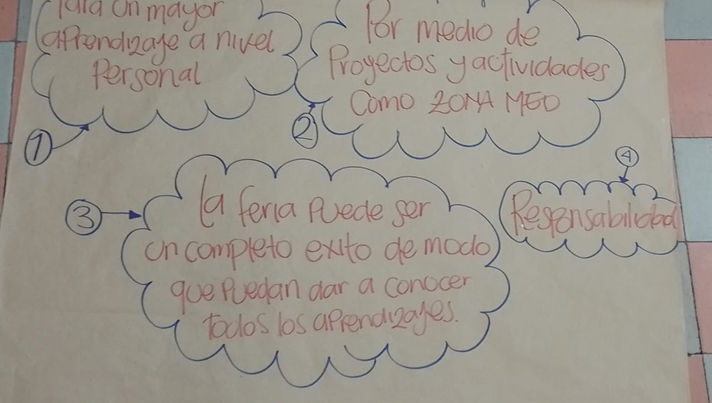 Para Un mayor
aprendizaje a nivel
Personal
1
Por medio de
Proyectos y actividades
Como ZONA MED
2
3
la feria Puede ser
un completo exito de modo
que Puedan dar a conocer
todos los aprendizajes.
4
Responsabilidad